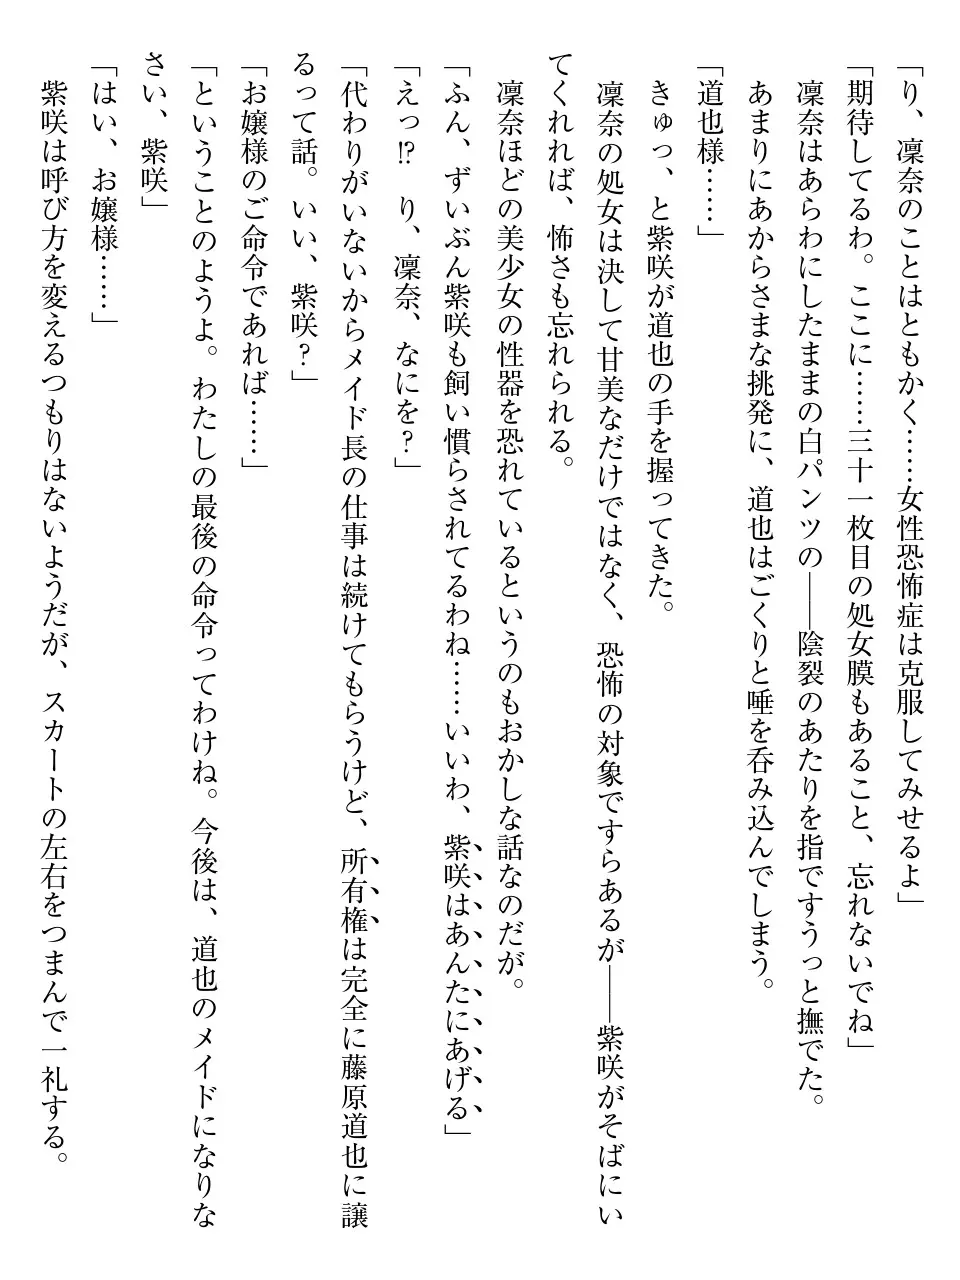 「り、凜奈のことはともかく……女性恐怖症は克服してみせるよ」
「期待してるわ。ここに……三十一枚目の処女膜もあること、忘れないでね」
　凜奈はあらわにしたままの白パンツの――陰裂のあたりを指ですうっと撫でた。
　あまりにあからさまな挑発に、道也はごくりと唾を呑み込んでしまう。
「道也様……」
　きゅっ、と紫咲が道也の手を握ってきた。
　凜奈の処女は決して甘美なだけではなく、恐怖の対象ですらあるが――紫咲がそばにい
てくれれば、怖さも忘れられる。
　凜奈ほどの美少女の性器を恐れているというのもおかしな話なのだが。
「ふん、ずいぶん紫咲も飼い慣らされてるわね……いいわ、紫咲はあんたにあげる」
「えっ!?　り、凜奈、なにを？」
「代わりがいないからメイド長の仕事は続けてもらうけど、所有権は完全に藤原道也に譲
るって話。いい、紫咲？」
「お嬢様のご命令であれば……」
「ということのようよ。わたしの最後の命令ってわけね。今後は、道也のメイドになりな
さい、紫咲」
「はい、お嬢様……」
　紫咲は呼び方を変えるつもりはないようだが、スカートの左右をつまんで一礼する。